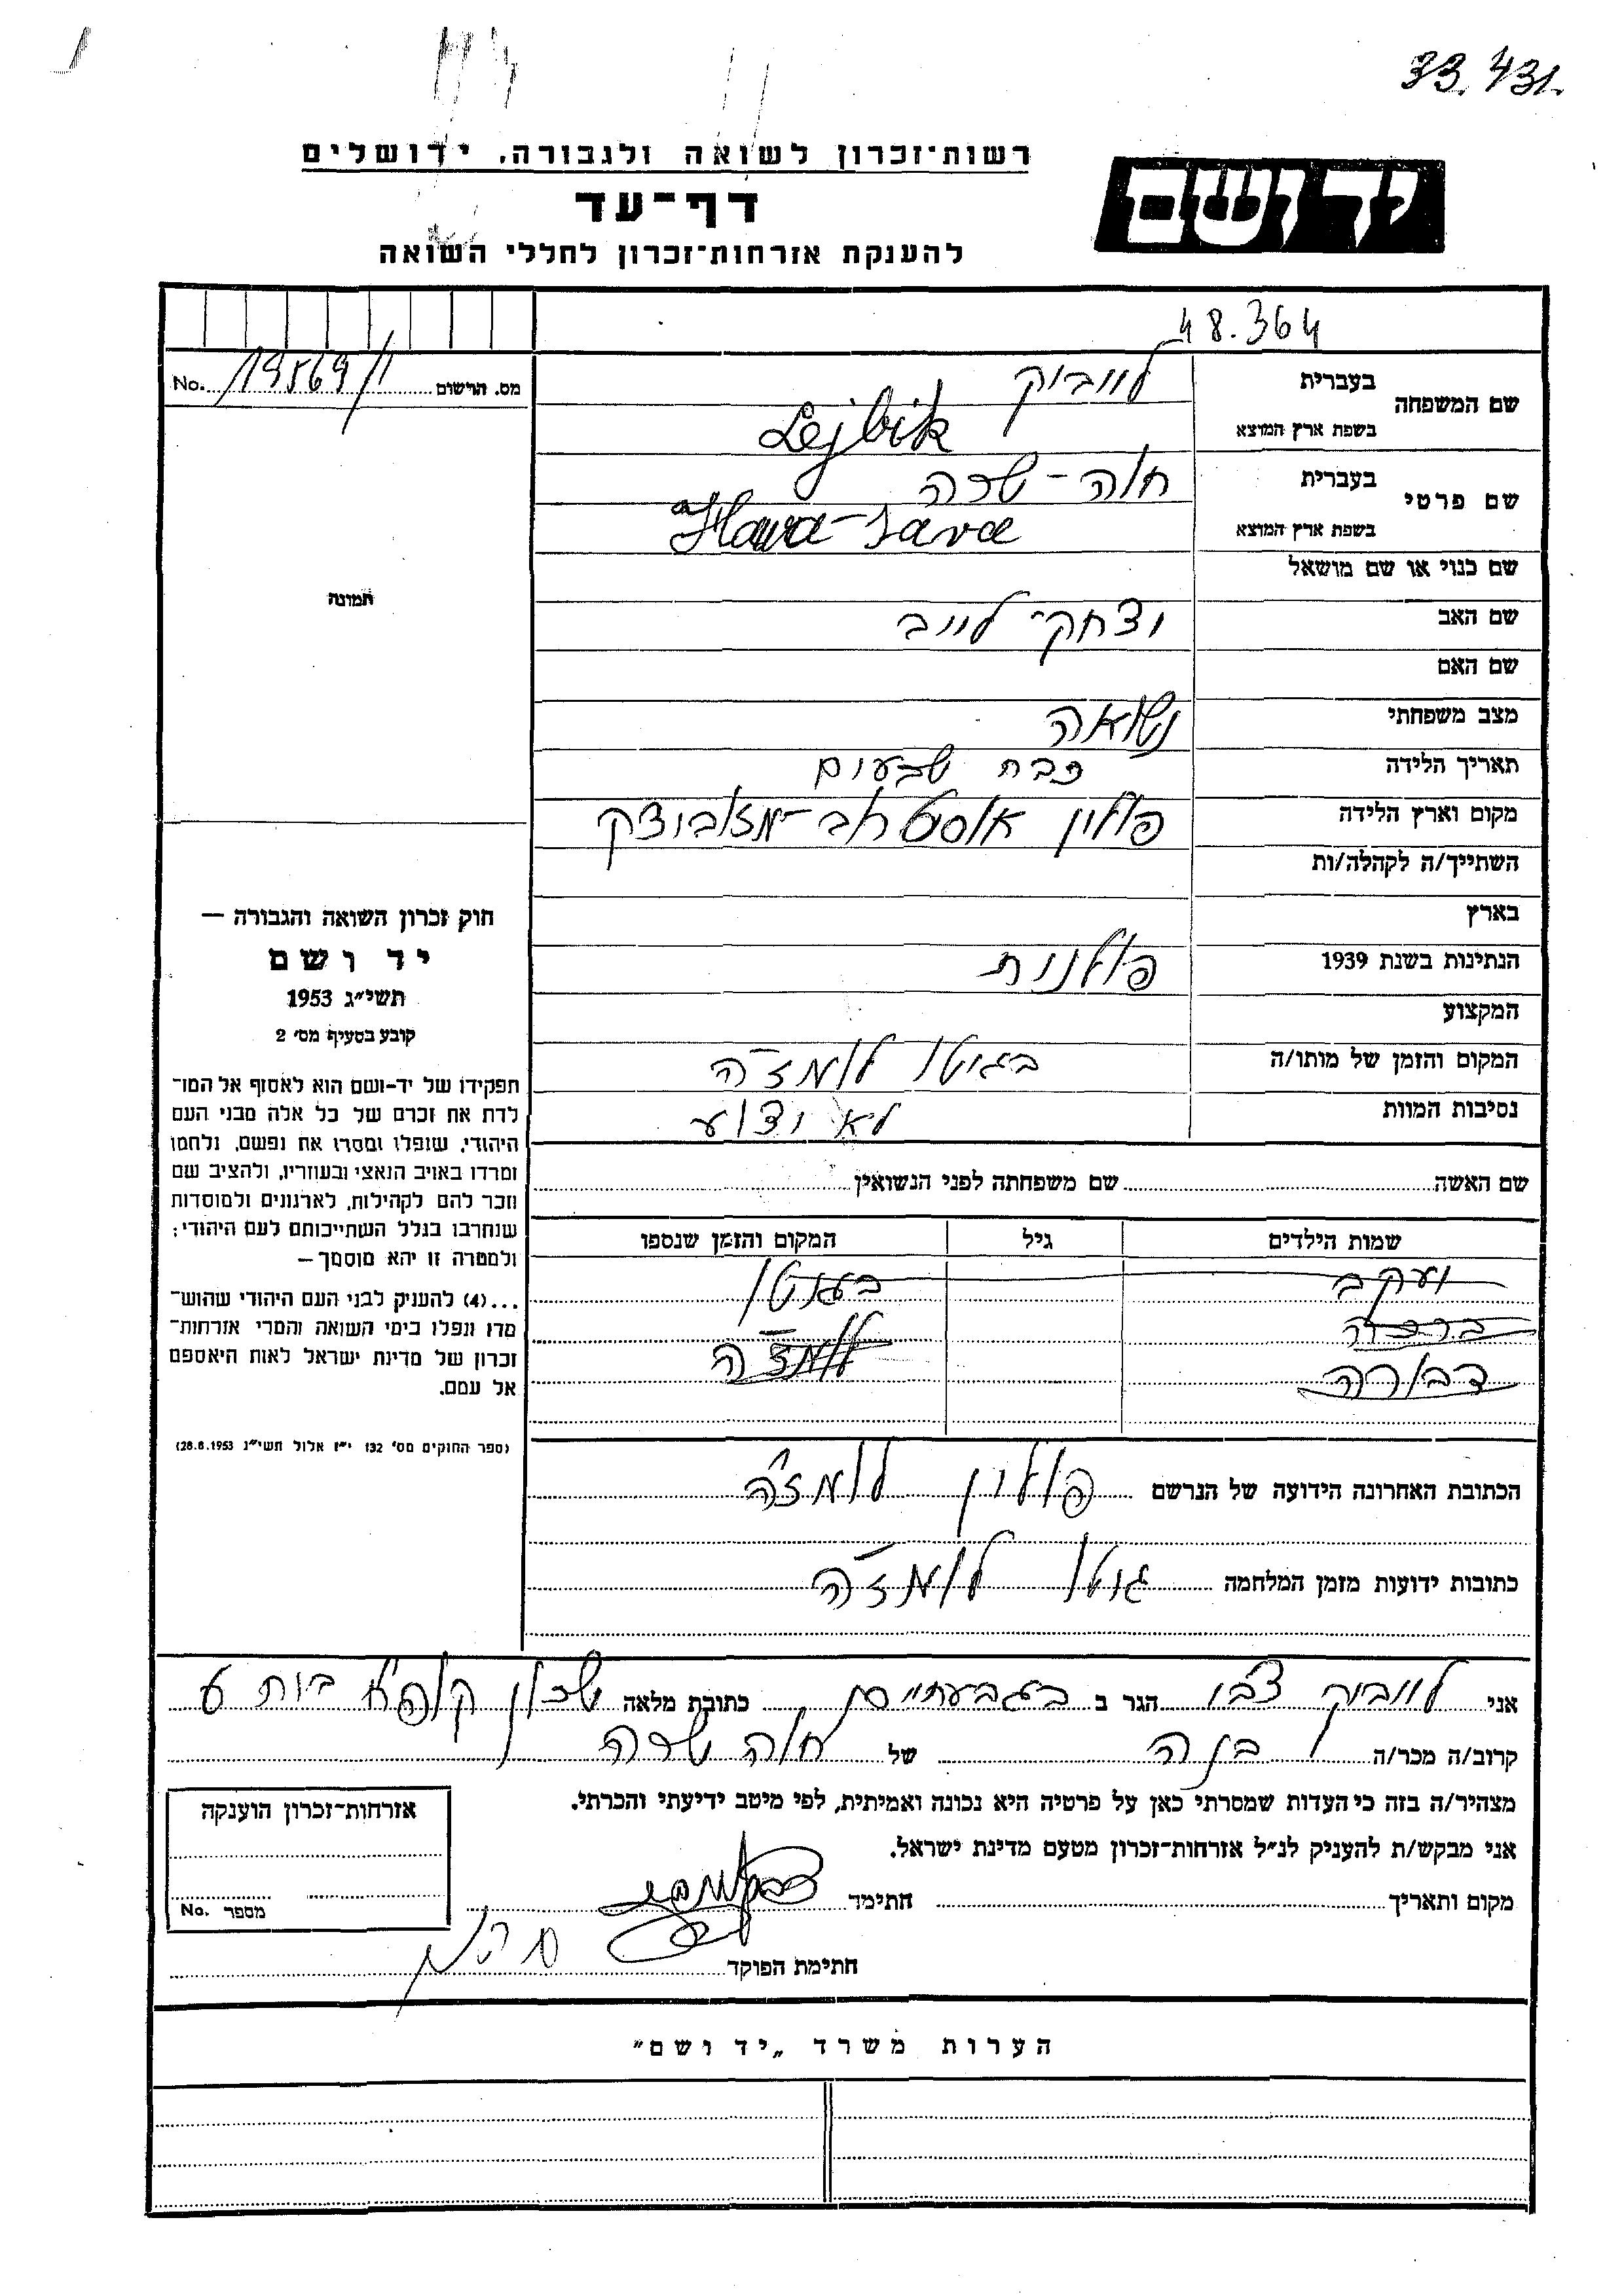 33.431.
רשות־זכרון לשואה ולגבורה, ירושלים
יד ושם
דף־עד
להענקת אזרחות־זכרון לחללי השואה
48.364
No. 19569/1 מס. הרישום
שם המשפחה
בעברית לייביק
בשפת ארץ המוצא Lejbik
שם פרטי
בעברית חוה-שרה
בשפת ארץ המוצא Hawa-Sara
שם כנוי או שם מושאל
שם האב יצחק-לייב
שם האם
מצב משפחתי נשואה
תאריך הלידה שבעים
מקום וארץ הלידה פולין אוסטרוב-מזוביצק
השתייך/ה לקהלה/ות
בארץ
הנתינות בשנת 1939 פולנית
המקצוע
המקום והזמן של מותו/ה בגיטו לומז'ה
נסיבות המוות לא ידוע
תמונה
חוק זכרון השואה והגבורה —
יד ושם
תשי״ג 1953
קובע בסעיף מס׳ 2
תפקידו של יד-ושם הוא לאסוף אל המו־
לדת את זכרם של כל אלה מבני העם
היהודי, שנפלו ומסרו את נפשם, נלחמו
ומרדו באויב הנאצי ובעוזריו, ולהציב שם
וזכר להם לקהילות, לארגונים ולמוסדות
שנחרבו בגלל השתייכותם לעם היהודי;
ולמטרה זו יהא מוסמך —
...(4) להעניק לבני העם היהודי שהוש־
מדו ונפלו בימי השואה והמרי אזרחות־
זכרון של מדינת ישראל לאות היאספם
אל עמם.
(ספר החוקים מס׳ 132 י״ז אלול תשי״ג 28.8.1953)
שם האשה שם משפחתה לפני הנשואין
שמות הילדים גיל המקום והזמן שנספו
יעקב בגיטו
ברכה לומז'ה
דבורה
הכתובת האחרונה הידועה של הנרשם פולין לומז'ה
כתובות ידועות מזמן המלחמה גיטו לומז'ה
אני לייביק צבי הגר ב בגבעתיים כתובת מלאה שכון קופ"א בית 6
קרוב/ה מכר/ה בנה של חוה שרה
מצהיר/ה בזה כי העדות שמסרתי כאן על פרטיה היא נכונה ואמיתית, לפי מיטב ידיעתי והכרתי.
אני מבקש/ת להעניק לנ״ל אזרחות־זכרון מטעם מדינת ישראל.
מקום ותאריך חתימה
חתימת הפוקד
אזרחות־זכרון הוענקה
No. מספר
הערות משרד „יד ושם״